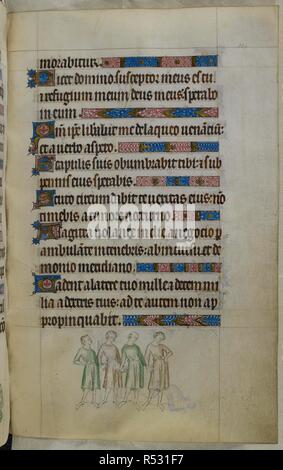 morabitur.
Dicet domino susceptor meus es tu
et refugium meum deus meus sperabo
in eum.
Qm ipse liberavit me de laqueo venantiu
et a verbo aspero.
Scapulis suis obumbrabit tibi: et sub
pennis eius sperabis.
Scuto circundabit te veritas eius: no
timebis a timore nocturno.
A sagitta volante in die a negocio p
ambulante in tenebris: ab incursu et de
monio meridiano.
Cadent a latere tuo mille et decem mi
lia a dextris tuis: ad te autem non ap
propinquabit.
alamy
R531F7
www.alamy.com